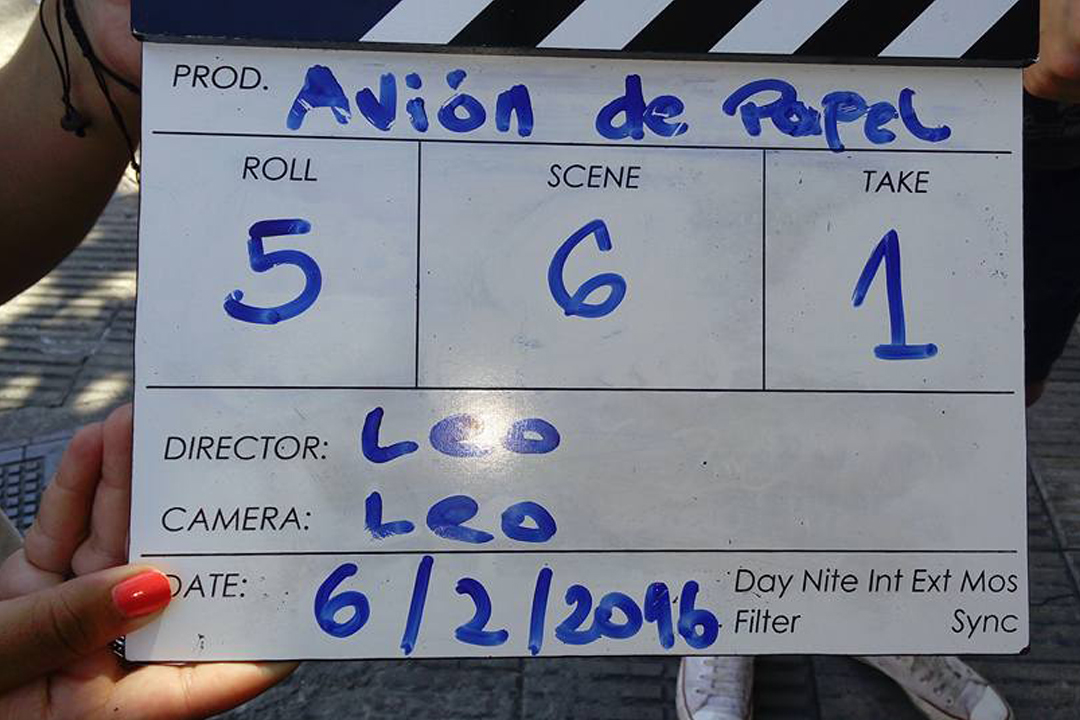 PROD. Avión de Papel
ROLL SCENE TAKE
5 6 1
DIRECTOR: Leo
CAMERA: Leo
DATE: 6/2/2016 Day Nite Int Ext Mos
Filter Sync